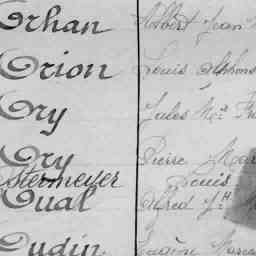 Orhan Albert Jean
Orion Louis Alphons
Ory Jules M.
Ory Pierre Mar
Ostermeyer Louis
Oual Alfred J.H.
Oudin Eugène Marce